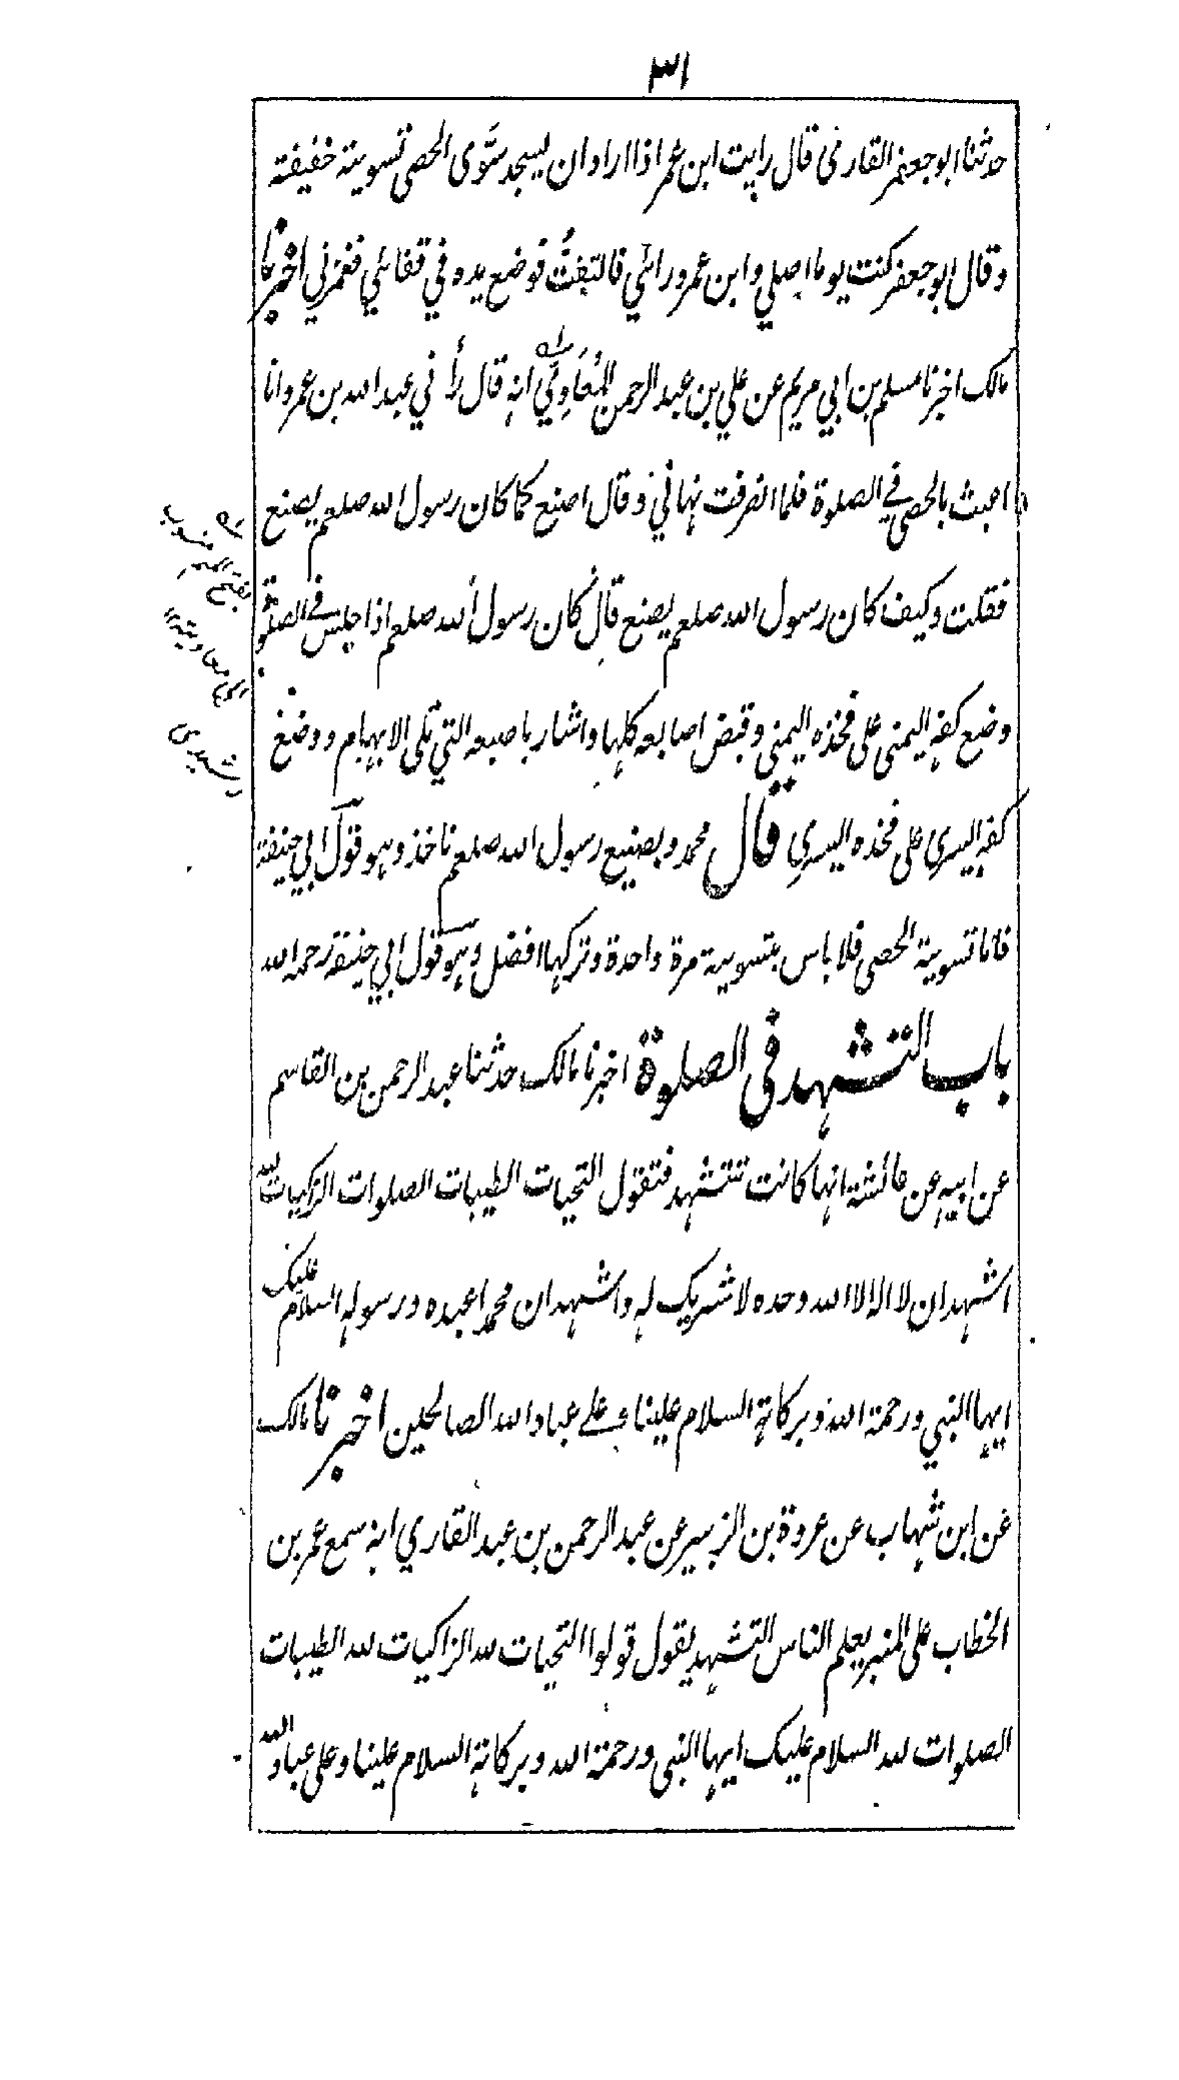 ٣١
حدثنا ابو جعفر القارئ قال رايت ابن عمر اذا اراد ان يسجد سَوَّى الحصى تسوية خفيفة
وقال ابو جعفر كنت يوما اصلي وابن عمر ورائي فالتفتُّ فوضع يده في قفائي فغمزني اخبرنا
مالك اخبرنا مسلم بن ابي مريم عن علي بن عبد الرحمن المُعَاوِيِّ انه قال رأني عبد الله بن عمر وانا
اعبث بالحصى في الصلوة فلما انصرفت نهاني وقال اصنع كما كان رسول الله صلعم يصنع
فقلت وكيف كان رسول الله صلعم يصنع قال كان رسول الله صلعم اذا جلس في الصلوة
وضع كفه اليمنى على فخذه اليمني وقبض اصابعه كلها واشار باصبعه التي تلى الابهام ووضع
كفه اليسري على فخذه اليسري قال محمد وبصنيع رسول الله صلعم ناخذ وهو قول ابي حنيفة
فاما تسوية الحصى فلا باس بتسويته مرة واحدة وتركها افضل وهو قول ابي حنيفة رحمه الله
باب التشهد في الصلوة اخبرنا مالك حدثنا عبد الرحمن بن القاسم
عن ابيه عن عائشة انها كانت تتشهد فتقول التحيات الطيبات الصلوات الزاكيات لله
اشهد ان لا اله الا الله وحده لا شريك له واشهد ان محمدا عبده ورسوله السلام عليك
ايها النبي ورحمة الله وبركاته السلام علينا وعلے عباد الله الصالحين اخبرنا مالك
عن ابن شهاب عن عروة بن الزبير عن عبد الرحمن بن عبد القاري انه سمع عمر بن
الخطاب على المنبر يعلم الناس التشهد يقول قولوا التحيات لله الزاكيات لله الطيبات
الصلوات لله السلام عليك ايها النبي ورحمة الله وبركاته السلام علينا وعلى عباد الله
بفتح الميم منسوب
الى معاوية